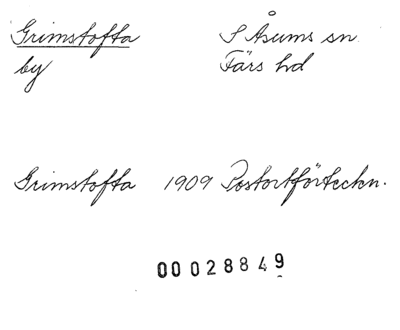 Grimstofta S Åsums sn.
by Färs hd
Grimstofta 1909 Postortförteckn.
00028849